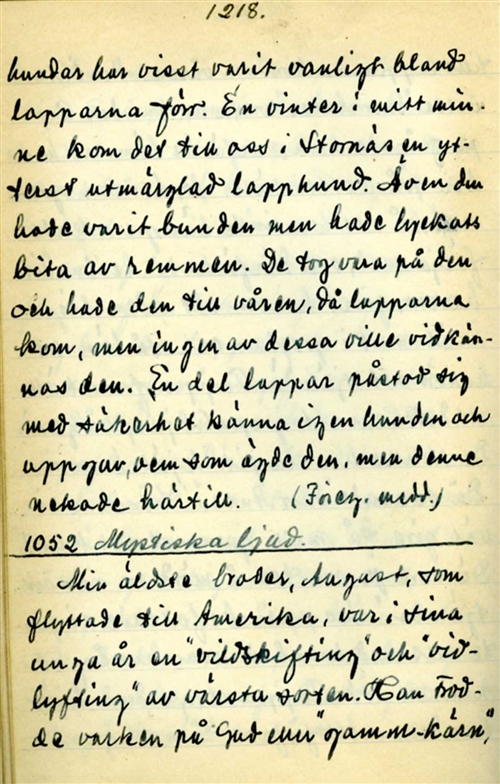 1218.
hundar har visst varit vanligt bland
lapparna förr. En vinter i mitt min-
ne kom det till oss i Stornäs en yt-
terst utmärglad lapphund. Även den
hade varit bunden men hade lyckats
bita av remmen. De tog vara på den
och hade den till våren, då lapparna
kom, men ingen av dessa ville vidkän-
nas den. En del lappar påstod sig
med säkerhet känna igen hunden och
uppgav, vem som ägde den, men denne
nekade härtill. (Föreg. medd.)
1052 Mystiska ljud.
Min äldste broder, August, som
flyttade till Amerika, var i sina
unga år en "vildskifting" och "vid-
lyfting" av värsta sorten. Han trod-
de varken på Gud eller "gamm-kärn",